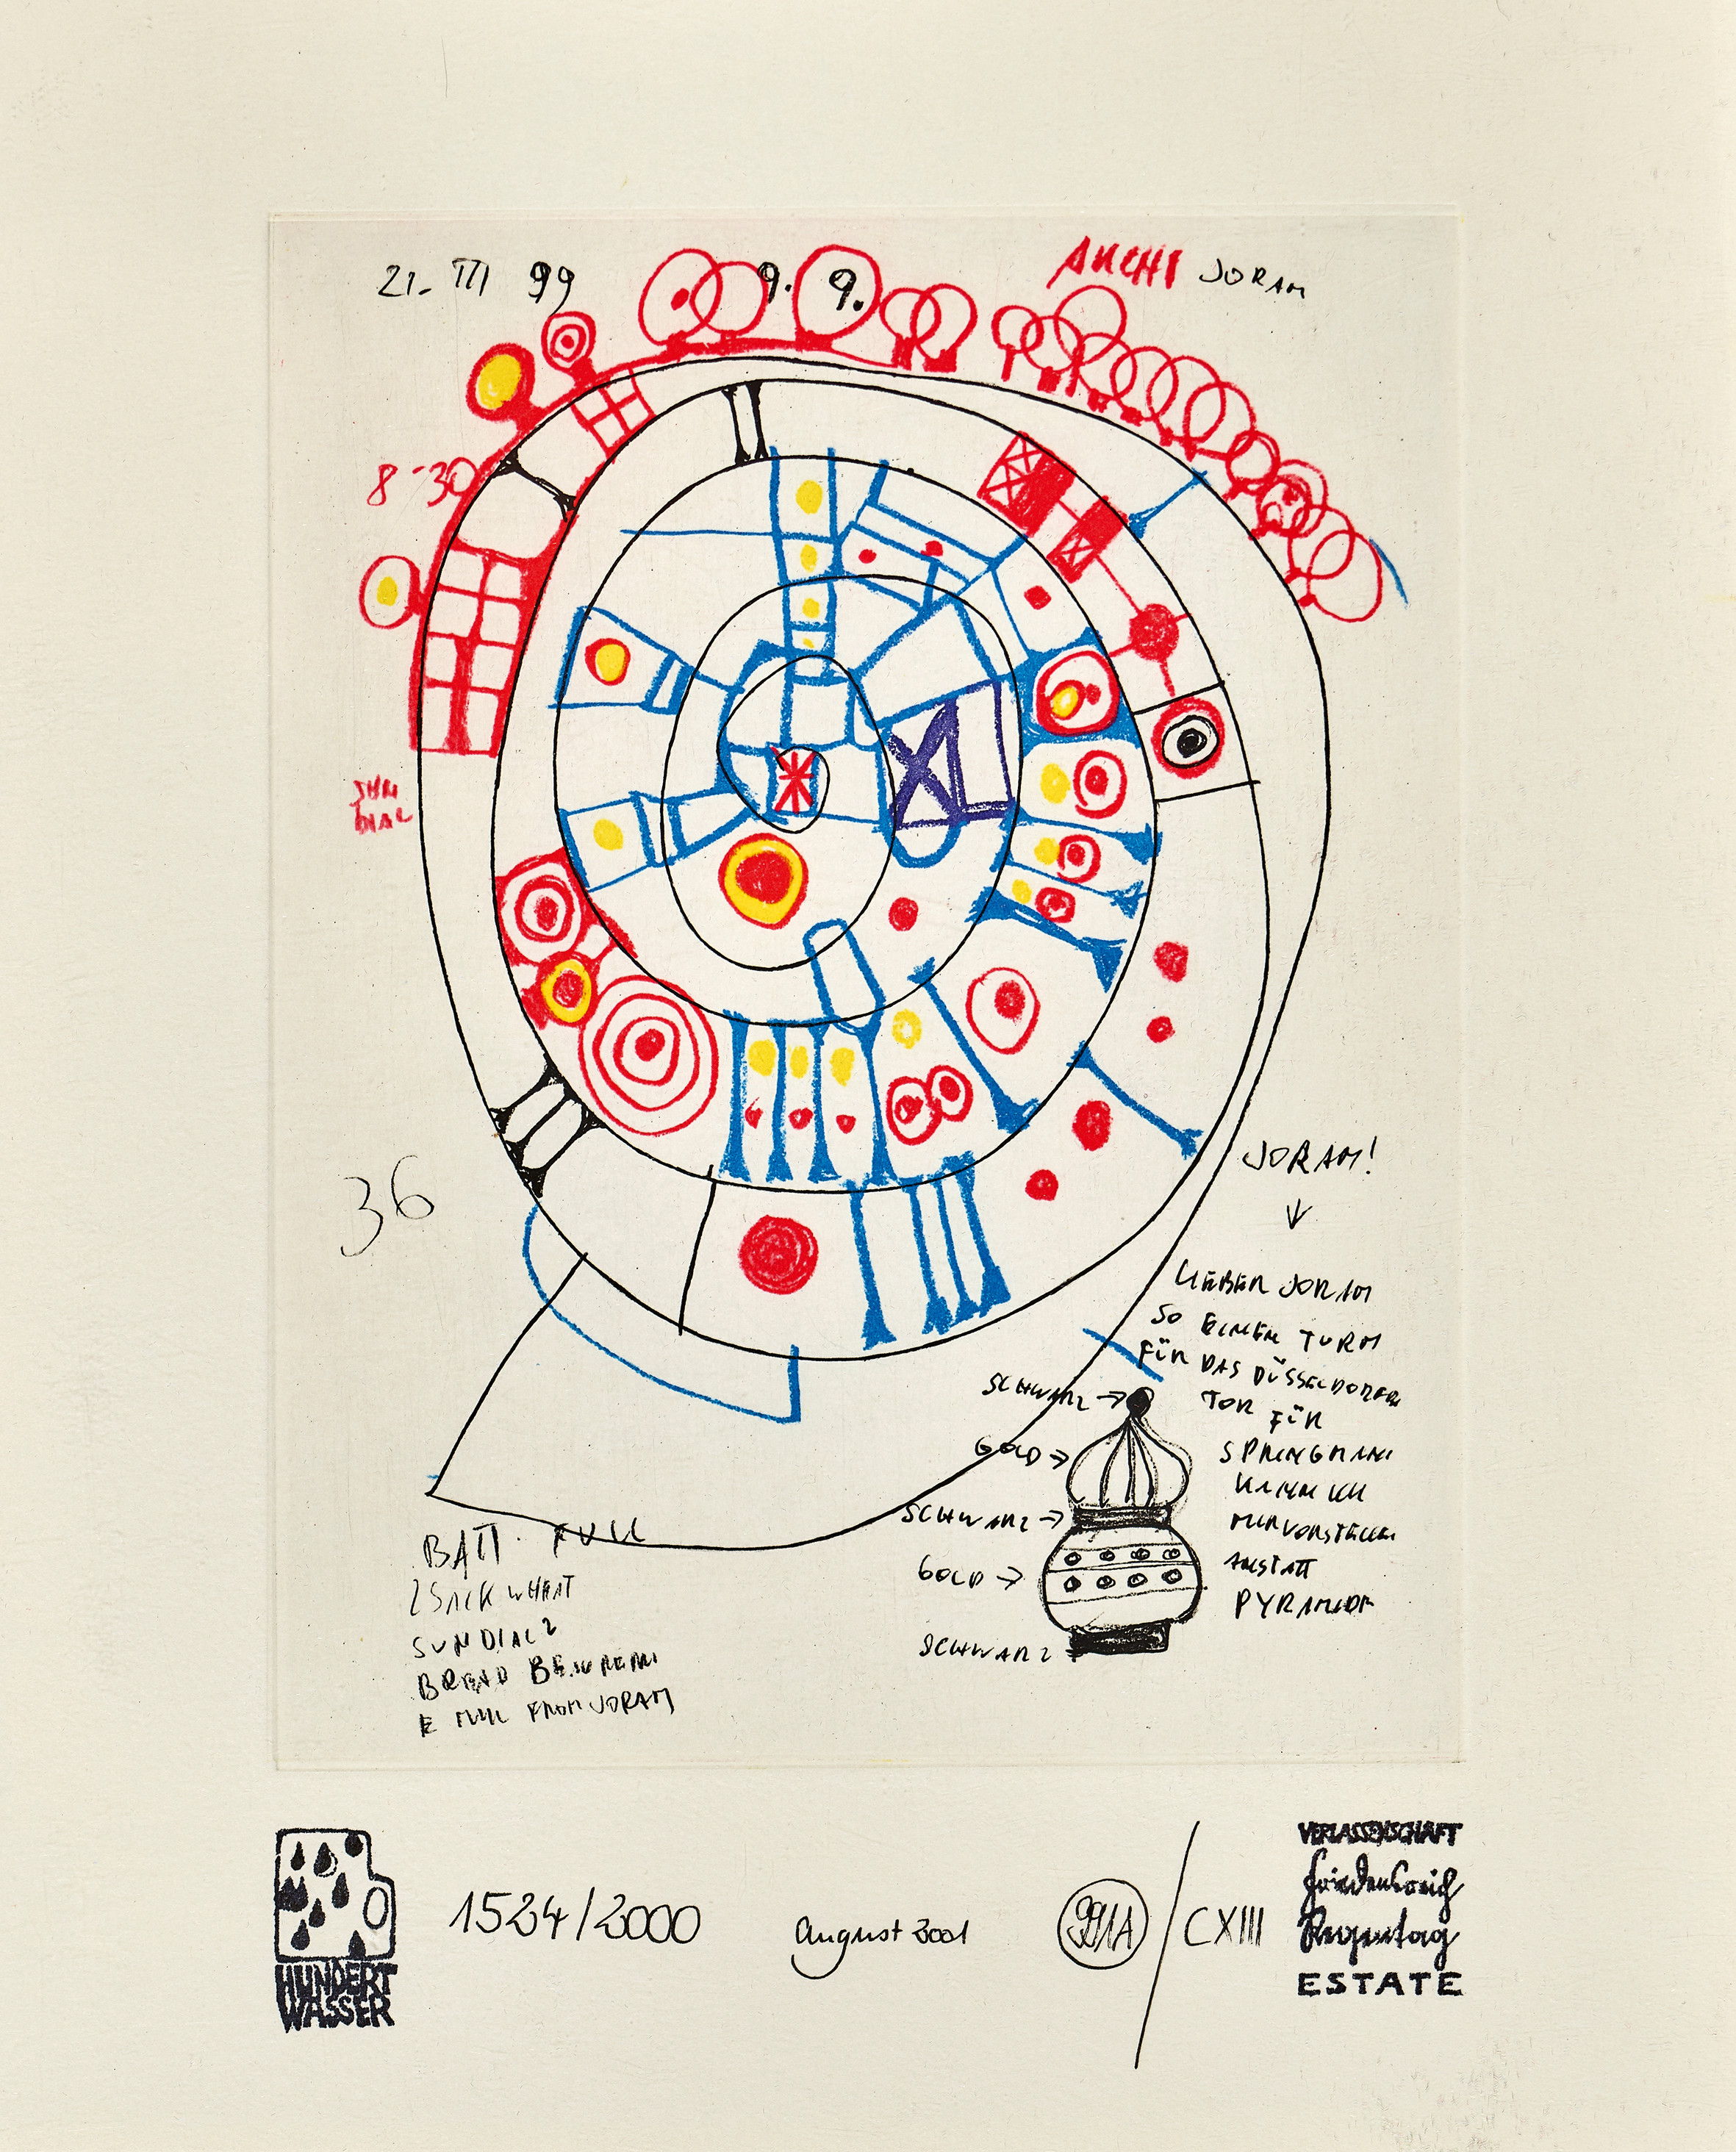 21. III 99 9. 9.
JORAM
8-30
DIAL
36
JORAM!
LIEBER JORAM
SO EINEN TURM
FÜR DAS DÜSSELDORFER
TOR FÜR
SPRINGMANN
KANN ICH
MIR VORSTELLEN
ANSTATT
PYRAMIDE
SCHWARZ
GOLD
SCHWARZ
GOLD
SCHWARZ
BATT. FULL
2 SACK WHEAT
SUNDIAL 2
BREAD
E MAIL FROM JORAM
HUNDERT
WASSER
1524/2000
August 2001
991A / CXIII
VERLASSENSCHAFT
Friedensreich
Regentag
ESTATE